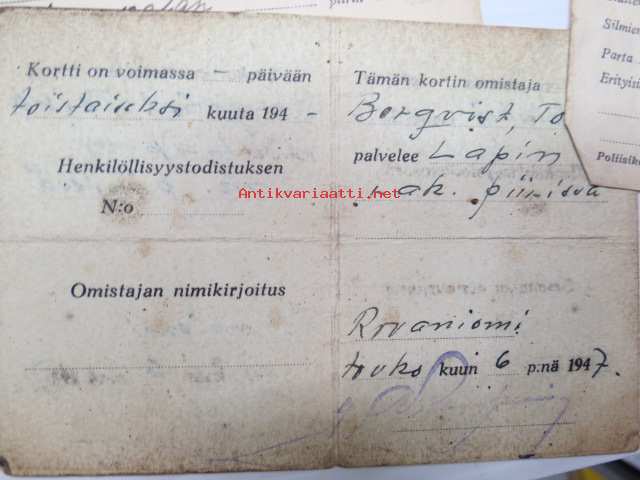 piirin
Kortti on voimassa — päivään
toistaiseksi kuuta 194 -
Henkilöllisyystodistuksen
N:o
Omistajan nimikirjoitus
Tämän kortin omistaja
Bergqvist, To
palvelee Lapin
rak. piirissä
Rovaniemi
touko kuun 6 p:nä 1947.
Antikvariaatti.net
Silmien
Parta
Erityisi
Poliisik